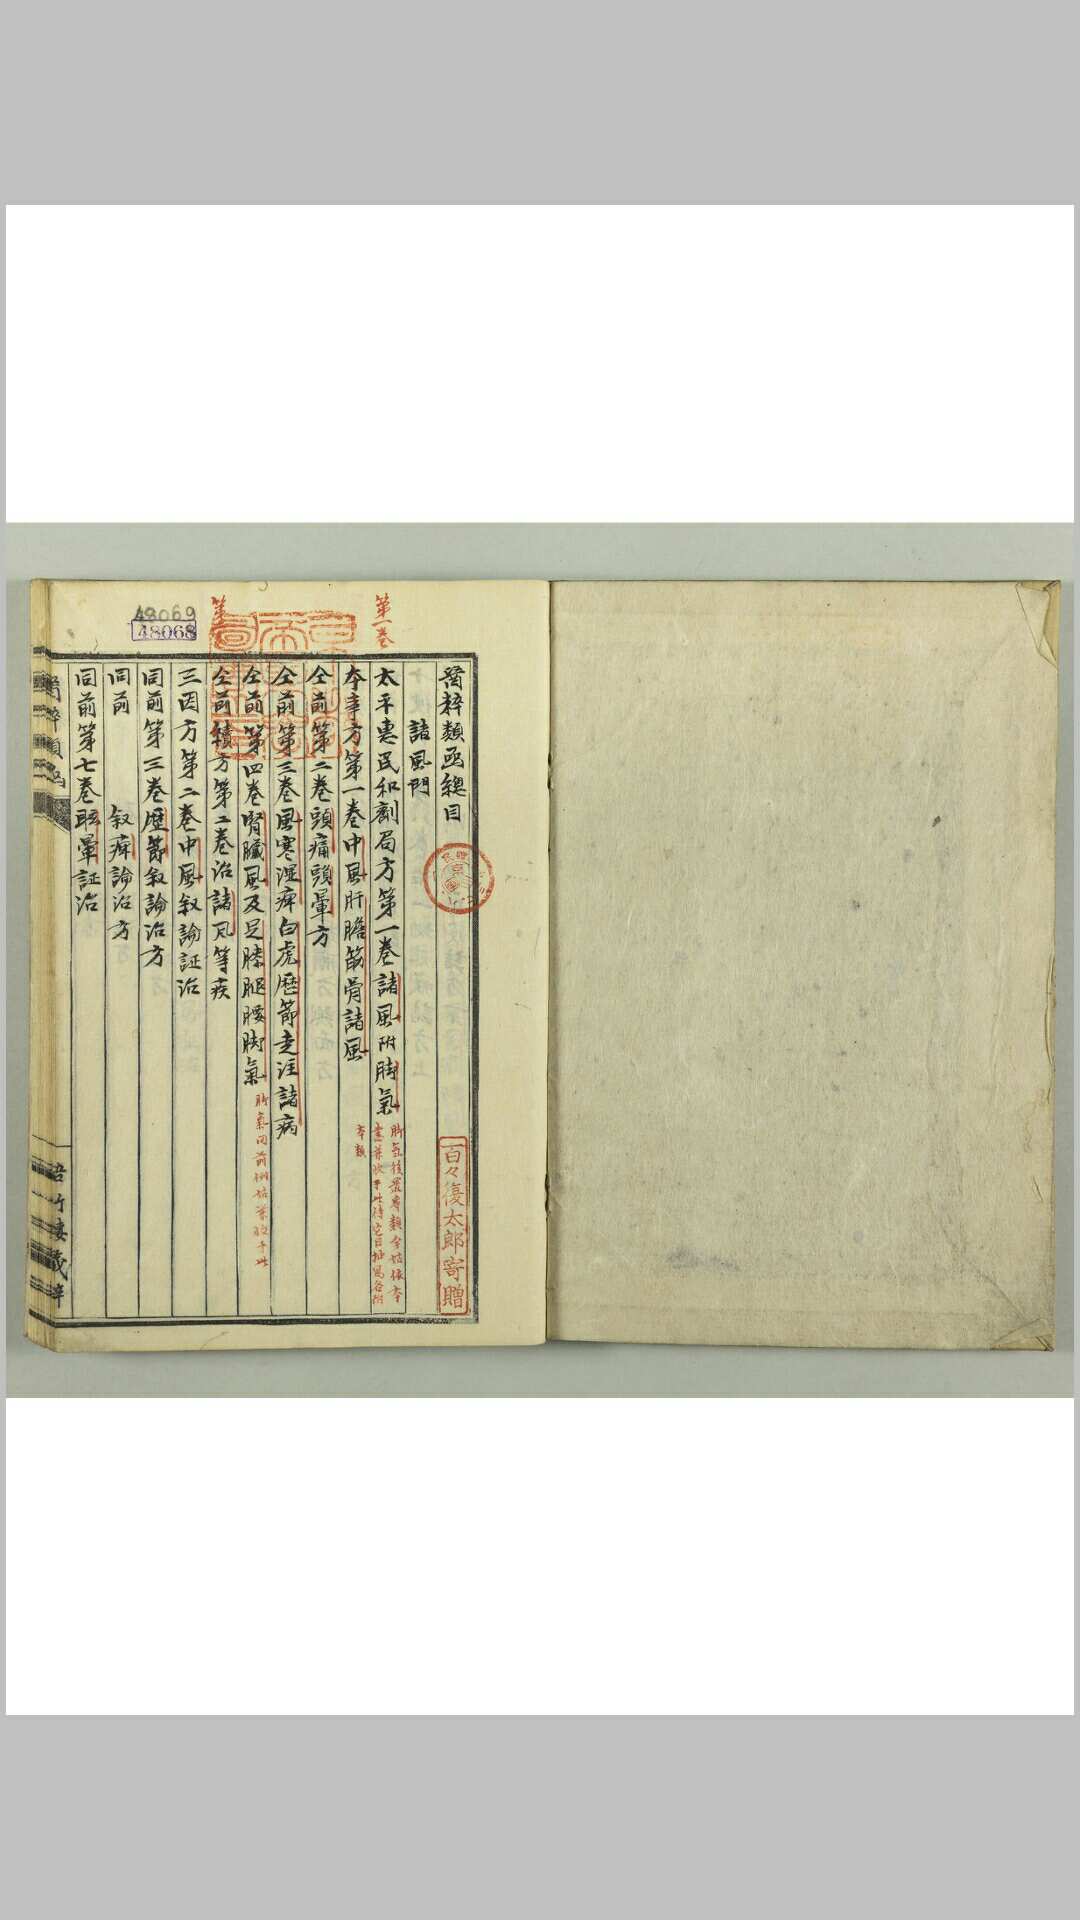 第一卷
醫粹類函總目
諸風門
太平惠民和劑局方第一卷諸風附脚氣
脚氣後
本類
本事方第一卷中風肝膽筋骨諸風
仝前第二卷頭痛頭暈方
仝前第三卷風寒湿痺白虎歴節走注諸病
仝前第四卷腎臓風及足膝腿腰脚氣
脚氣同前例姑兼收于此
仝前續方第二卷治諸风等疾
三因方第二卷中風叙論証治
同前第三卷歴節叙論治方
同前 叙痺論治方
同前第七卷眩暈証治
48069
48068
百々復太郎寄贈